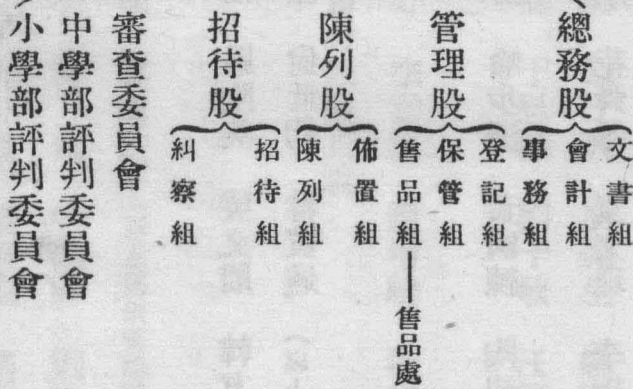 總務股
文書組
會計組
事務組
管理股
登記組
保管組
售品組——售品處
陳列股
佈置組
陳列組
招待股
招待組
糾察組
審查委員會
中學部評判委員會
小學部評判委員會